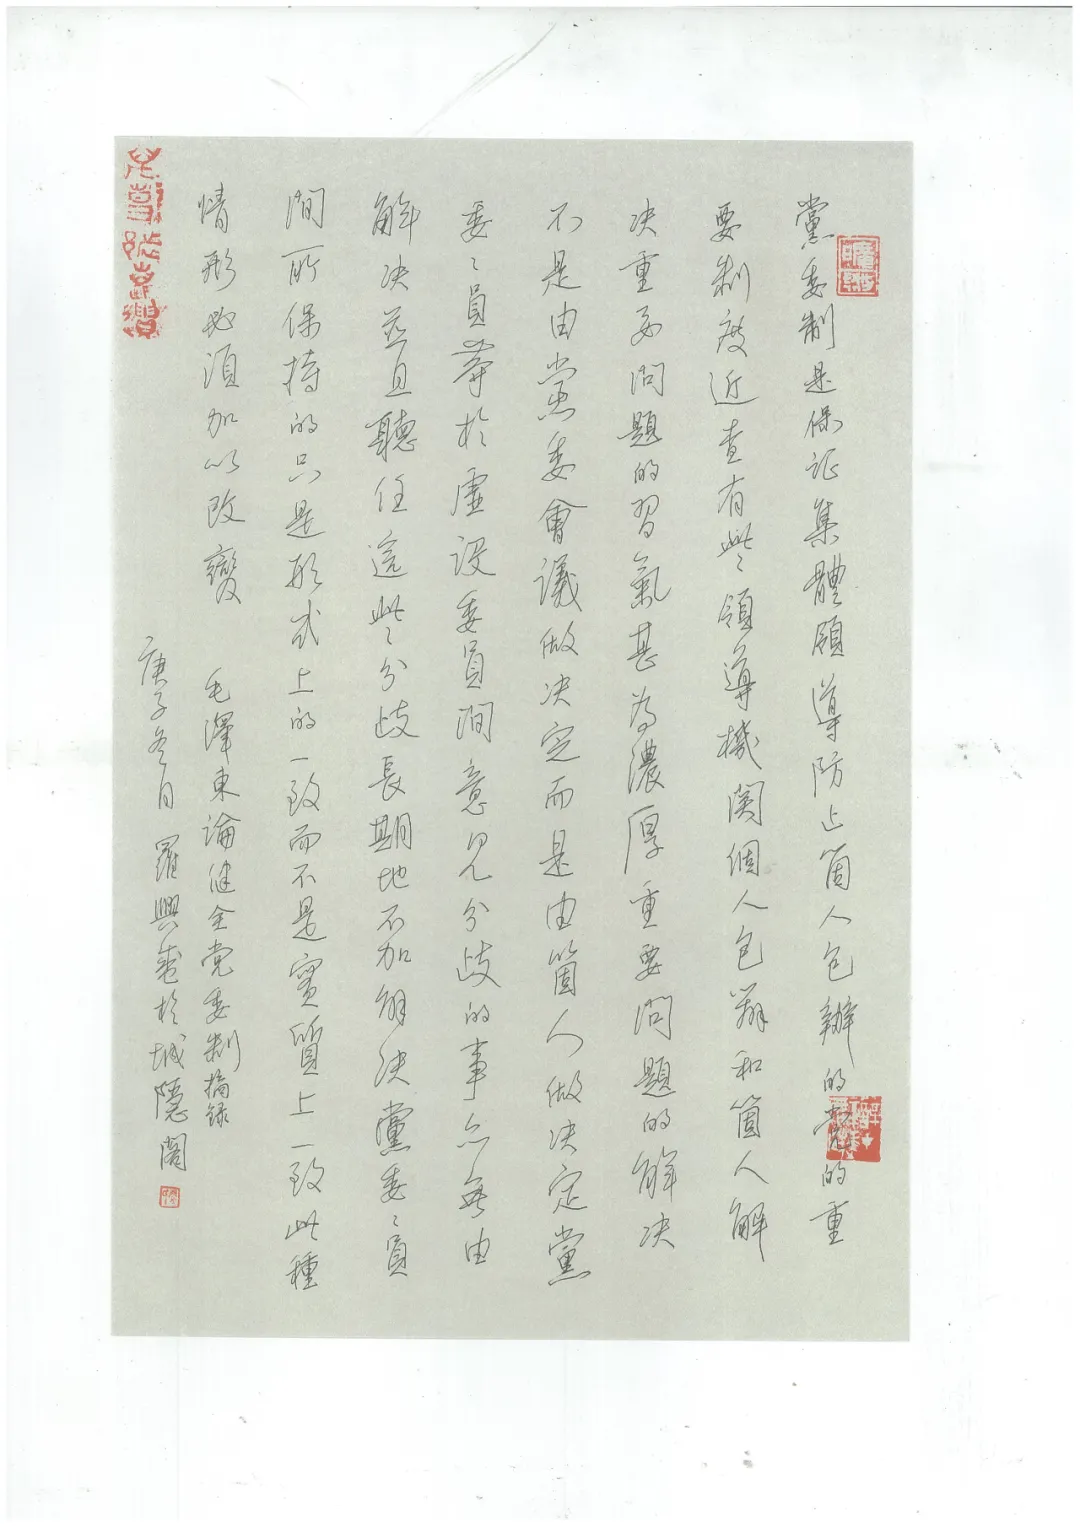 黨委制是保证集體領導防止箇人包辦的党的重
要制度近查有些々領導機関個人包辦和箇人解
决重要問題的習氣甚為濃厚重要問題的解决
不是由黨委會議做决定而是由箇人做决定黨
委々員等於虚設委員間意見分歧的事亦無由
解决并且聽任這些々分歧長期地不加解决黨委々員
間所保持的只是形式上的一致而不是實質上一致此種
情形必須加以改變
毛澤東論健全党委制摘録
庚子冬日羅興 於城隱閣